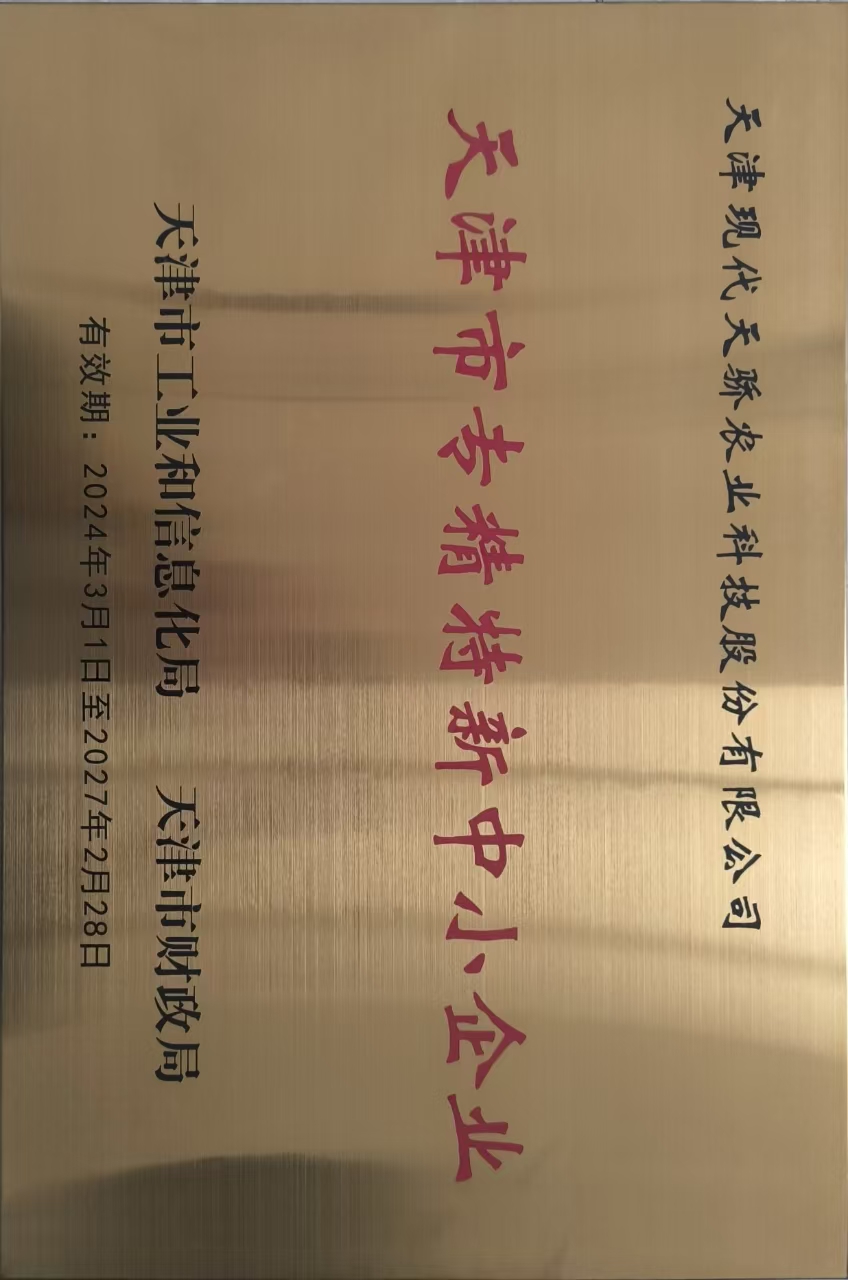 天津现代天骄农业科技股份有限公司
天津市专精特新中小企业
天津市工业和信息化局 天津市财政局
有效期：2024年3月1日至2027年2月28日